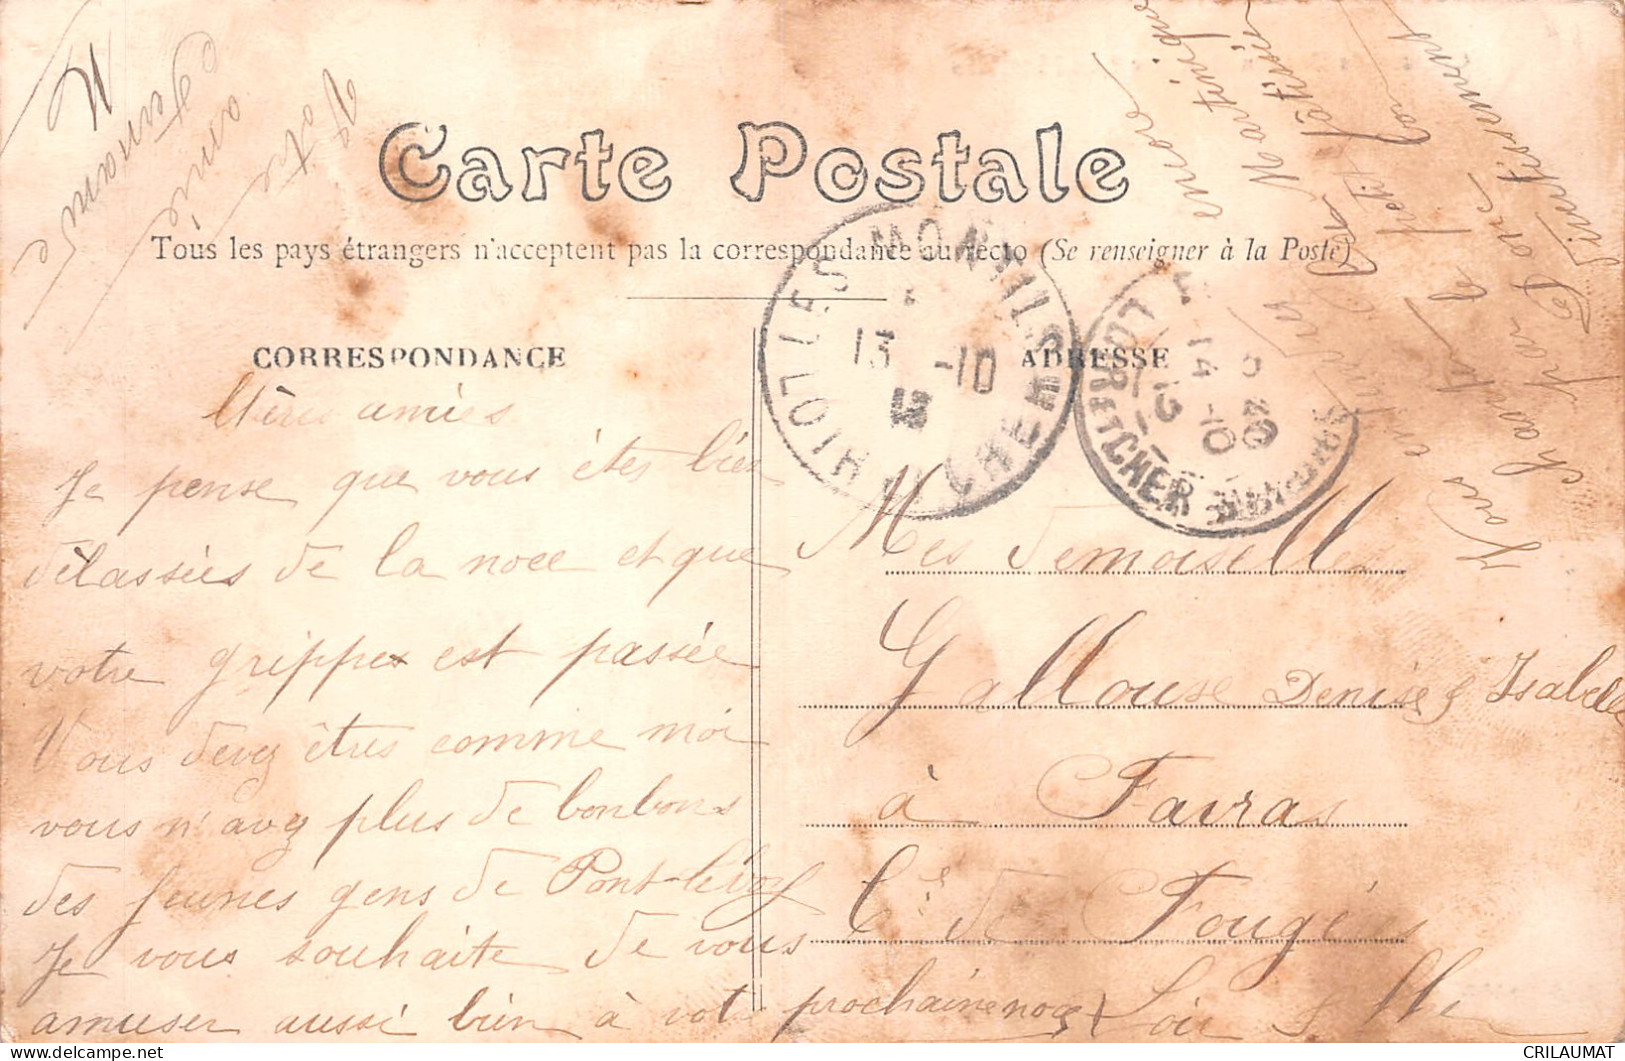 Carte Postale
Tous les pays étrangers n'acceptent pas la correspondance au recto (Se renseigner à la Poste)
CORRESPONDANCE
ADRESSE
LES MONTILS
LOIR CHER
13 -10
13
LOIR ET CHER
14 -10
amies
Je pense que vous êtes bien
délassées de la noce et que
votre grippe est passée
Vous devez êtres comme moi
vous n'avez plus de bonbons
des jeunes gens de Pont-levoy
Je vous souhaite de vous
amuser aussi bien à votr prochaine noce
Mes demoiselles
Gallouse Denise & Isabelle
à Favras
Cne de Fougères
Loir &
Vous
encore
la Martinique
petit
par Done
Votre
amie
Fernande
CRILAUMAT